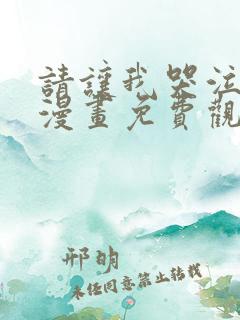 請讓我哭泣
漫畫免費觀
邢明
未經同意禁止轉載